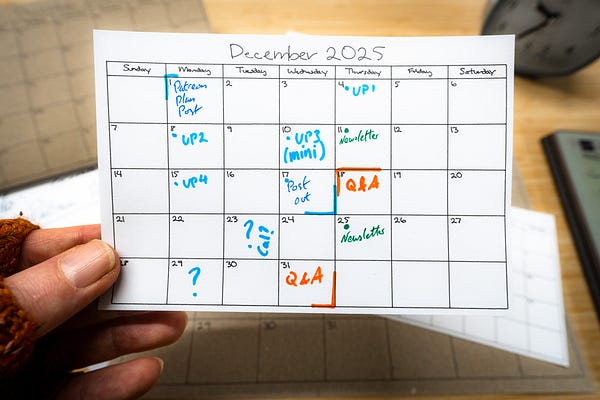 December 2025
Sunday Monday Tuesday Wednesday Thursday Friday Saturday
1 2 3 4 5 6
Patreon
Plan
Post
• UP1
7 8 9 10 11 12 13
• UP2
• UP3
(mini)
Newsletter
14 15 16 17 18 19 20
• UP4
Post
out
Q&A
21 22 23 24 25 26 27
?
Call?
Newsletter
28 29 30 31
?
Q&A
29
30
31